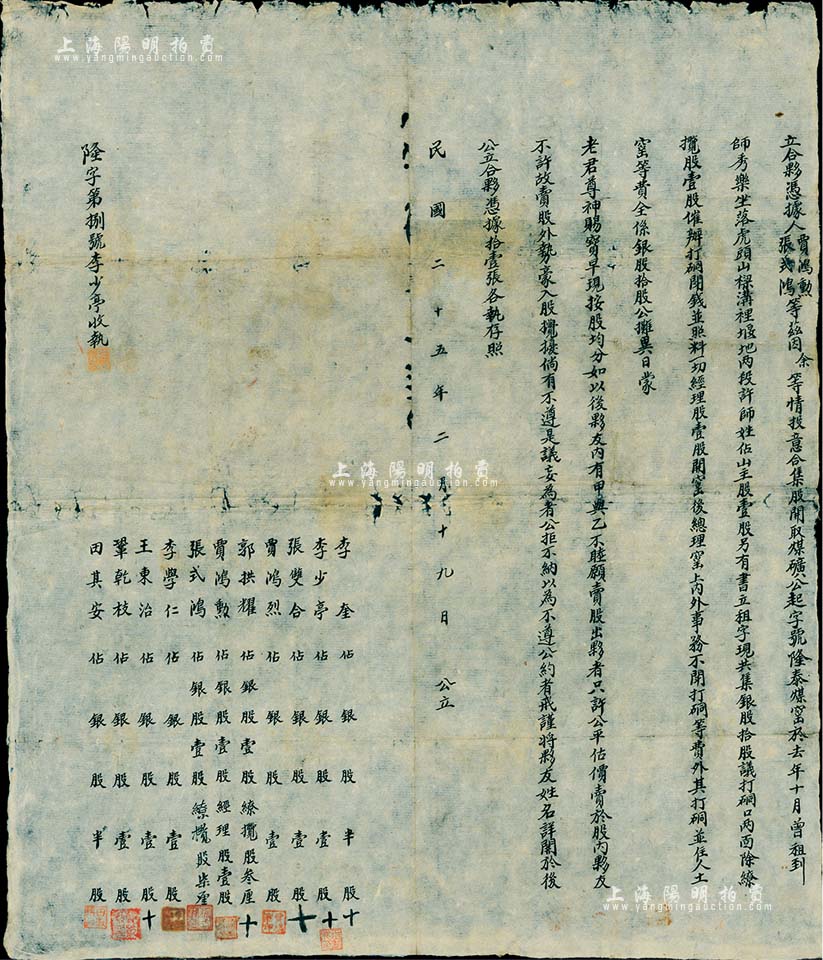 立合夥憑據人賈鴻勲張弍鴻等玆因余等情投意合集股開取煤礦公起字號隆泰煤窰於去年十月曾租到
師秀樂坐落虎頭山樑溝裡堰地两段許師姓佔山主股壹股另有書立租字現共集銀股拾股議打硐口两面除繚
攬股壹股催辦打硐開錢並照料一切經理股壹股開窰後總理窰上内外事務不開打硐等費外其打硐並住人土
窰等費全係銀股拾股公攤異日蒙
老君尊神賜寳早現按股均分如以後夥友内有甲與乙不睦願賣股出夥者只許公平估價賣於股内夥友
不許故賣股外勢豪入股攪擾倘有不遵是議妄為者公拒不納以為不遵公約者戒謹將夥友姓名詳開於後
公立合夥憑據拾壹張各執存照
民國二十五年二月十九日 公立
李奎佔銀股半股十
李少亭佔銀股壹股
張雙合佔銀股壹股十
賈鴻烈佔銀股壹股
郭拱耀佔銀股壹股繚攬股叁厘十
賈鴻勲佔銀股壹股經理股壹股
張弍鴻佔銀股壹股繚攬股柒厘
李學仁佔銀股壹股
王東治佔銀股壹股十
鞏乾枝佔銀股壹股
田其安佔銀股半股
隆字第捌號李少亭收執
上海陽明拍賣
www.yangmingauction.com
上海陽明拍賣
www.yangmingauction.com
上海陽明拍賣
www.yangmingauction.com
上海陽明拍賣
www.yangmingauction.com